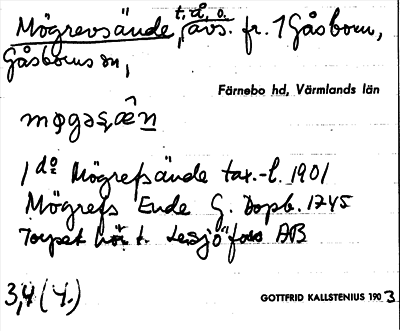 Mögrevsände, t. d. o. avs. fr. 1 Gåsborn,
Gåsborns sn,
Färnebo hd, Värmlands län
1 do Mögrefsände tax.-l. 1901
Mögrefs Ende G. Dopb. 1745
Torpet hör t. Lesjöfors AB
3,4 (4.)
GOTTFRID KALLSTENIUS 1903